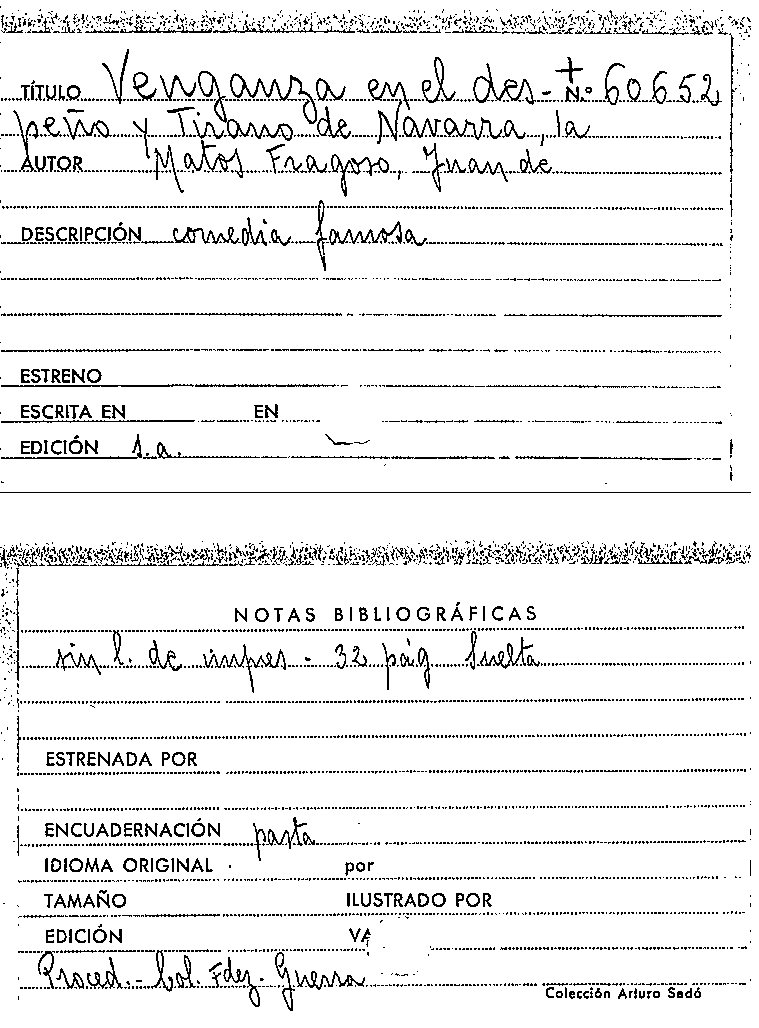 TÍTULO Venganza en el des- + N.º 60652
peño y Tirano de Navarra, la
AUTOR Matos Fragoso, Juan de
DESCRIPCIÓN comedia famosa
ESTRENO
ESCRITA EN EN
EDICIÓN s.a.
NOTAS BIBLIOGRÁFICAS
sin l. de impres - 32 pág Suelta
ESTRENADA POR
ENCUADERNACIÓN pasta
IDIOMA ORIGINAL por
TAMAÑO ILUSTRADO POR
EDICIÓN VA
Proced.- Col. Fdez. Guerra
Colección Arturo Sedó